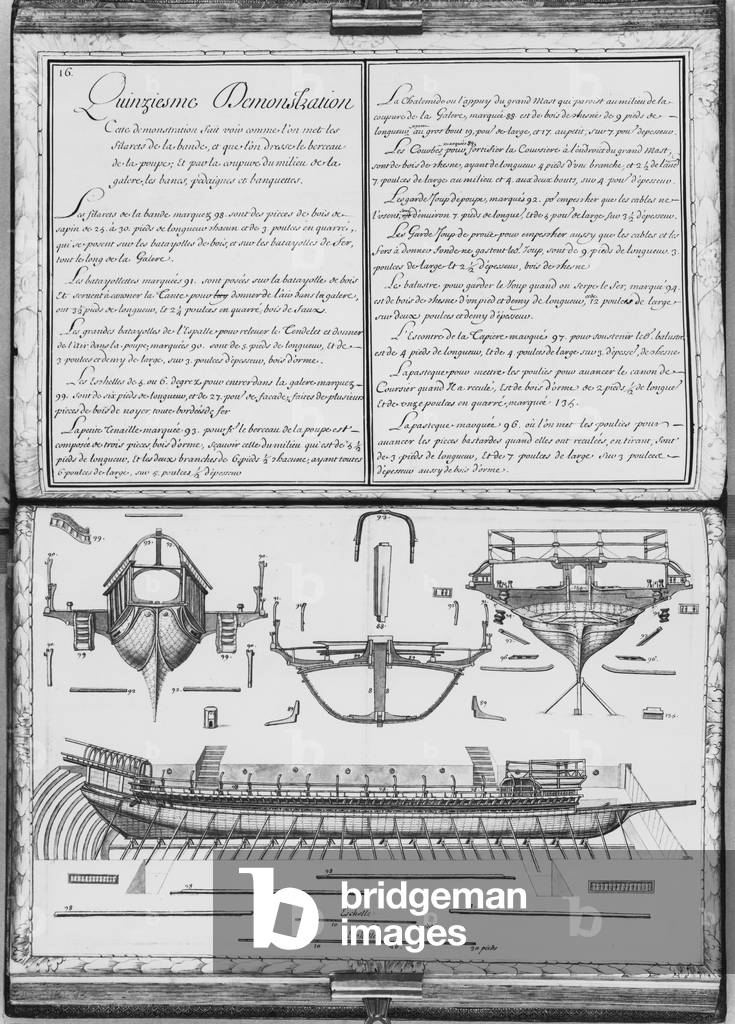 16.
Quinziesme Demonstration
Cette demonstration fait voir comme l'on met les
filarets de la bande, et que l'on dresse le berceau
de la poupe; Et par la coupure du milieu de la
galere, les bancs, pedaignes et banquettes.
Les filarets de la bande marquez 98. sont des pieces de bois de
sapin de 25. à 30. pieds de longueur chacun et de 3 poulces en quarré,
qui se posent sur les batayolles de bois, et sur les batayolles de fer,
tout le long de la Galere.
Les batayollettes marquées 91. sont posées sur la batayolle de bois
Et servent à donner la Tante pour donner de l'air dans la galere,
ont 3½ pieds de longueur, et 2¼ poulces en quarré, bois de faux.
Les grandes batayoles de l'Espalle pour relever le Tendelet et donner
de l'air dans la poupe, marquées 90. sont de 5 pieds de longueur, Et de
3 poulces et demy de large, sur 3. poulces d'épesseur, bois d'orme.
Les Eschelles de 5 ou 6. degrez pour entrer dans la galere marquez
99. sont de six pieds de longueur, et de 27. poul.es de facade, faites de plusieurs
pieces de bois de noyer, toute bordées de fer
La petite Tenaille marquée 93. pour le berceau de la poupe est
composée de trois pieces, bois d'orme, scavoir celle du milieu qui est de 5½
pieds de longueur, Et les deux branches de 6. pieds ½ chacune; ayant toutes
6 poulces de large, sur 5. poulces ½ d'épesseur
La Chatemide ou l'appuy du grand Mast qui paroist au milieu de la
coupure de la Galere, marquée 88. est de bois de chesne de 9 pieds de
longueur au gros bout 19. poul. de large, et 17. au petit, sur 7 poul. d'epesseur.
Les Courbes marquées 89. pour fortifier la Coursiere à l'endroit du grand Mast,
sont de bois de chesne, ayant de longueur 4 pieds d'une branche, et 2½ de l'autre
7 poulces de large au milieu et 4. aux deux bouts, sur 4 poul. d'épesseur.
Les garde Joup de poupe, marqués 92. pr. empescher que les cables ne
l'usent, d'environ 7 pieds de longue. Et de 5 poul. de large sur 3½ d'épesseur.
Les Garde Joup de proüe pour empescher aussy que les cables et les
fers à donner fonde ne gastent led. Joup, sont de 9. pieds de longueur. 3.
poulces de large Et 2½ d'épesseur, bois de chesne
Le balustre pour garder le Joup quand on serpe le fer, marqué 94.
est de bois de chesne d'un pied et demy de longueur, 12 poulces de large
sur deux poulces et demy d'épesseur.
L'Escontre de la Tapiere marqué 97. pour soustenir led. balustre
est de 4 pieds de longueur, Et de 4. poulces de large sur 3. d'epesse. de chesne
La pasteque pour mettre les poulies pour avancer le canon de
Coursier quand Il a reculé, Est de bois d'orme de 2 pieds ½ de longue.
Et de onze poulces en quarré, marquée 135.
La pasteque marquée 96. où l'on met les poulies pour
avancer les pieces bastardes quand elles ont reculées, en tirant, sont
de 3 pieds de longueur, Et de 7 poulces de large sur 3 poulces
d'épesseur aussy de bois d'orme.
99.
93.
90.
90.
99.
99.
92.
92.
88.
8 8
89
89
97
96.
96.
135.
98
98
98
Eschelle
10
20 pieds
b bridgeman
images